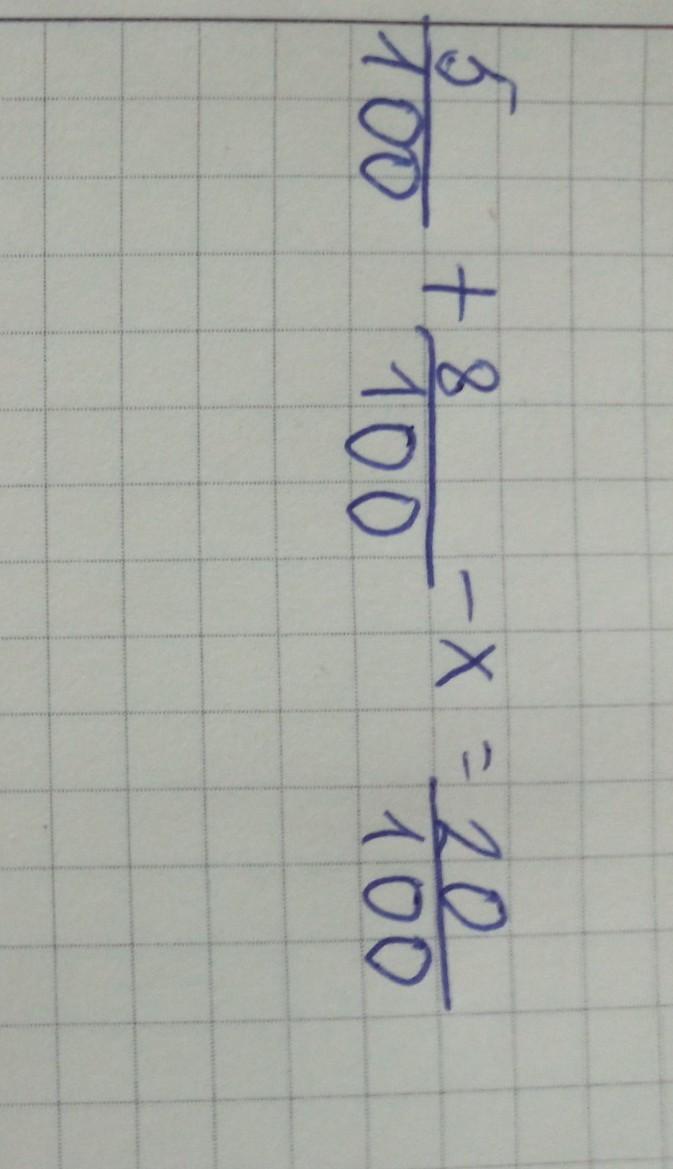 5/100 + 8/100 - x = 20/100